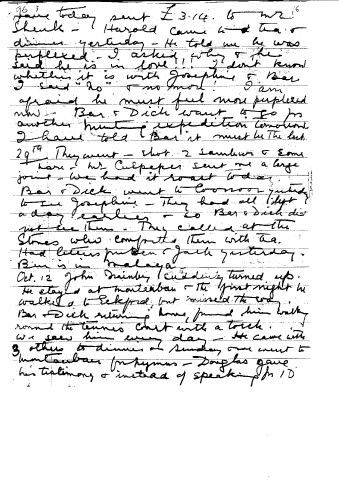 have today sent £3.14. to Mr.
Shenk - Harold came to tea &
dinner yesterday - He told me he was
perplexed - I asked why & he
said he is in love!! I don't know
whether it is with Josephine or Bar
I said "No" & no more! I am
afraid he must feel more perplexed
now - Bar & Dick want to go for
another hunting expedition tomorrow
I have told Bar it must be the last
29th They went - shot 2 Sambur & some
hare - Mr Culpeper sent me a large
joint - we had it roast today
Bar & Dick went to Coonoor yesterday
to see Josephine - They had all left
a day earlier - so Bar & Dick did
not see them - They called at the
Stones who comforted them with tea.
Had letters from Ben & Jack yesterday.
Ben is in Malaya.
Oct. 12 John Quinby turned up.
He stayed at Montauban & the first night he
walked to but missed the way.
Bar & Dick returning home, found him walking
round the tennis court with a torch.
We saw him every day - He came with
3 others to dinner on Sunday & we went to
Montauban for hymns - Douglas gave
his testimony & instead of speaking for 10